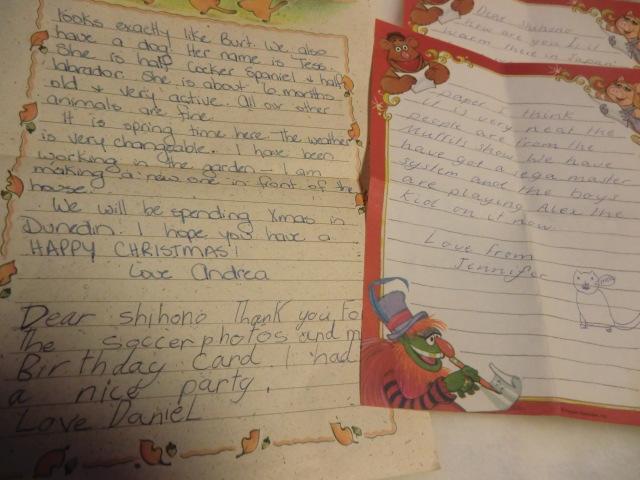 looks exactly like Burt. We also
have a dog! Her name is Tess.
She is half Cocker Spaniel + half
labrador. She is about 6 months
old + very active. All our other
animals are fine.
It is spring time here. The weather
is very changeable. I have been
working in the garden - I am
making a new one in front of the
house.
We will be spending Xmas in
Dunedin. I hope you have a
HAPPY CHRISTMAS!
Love Andrea
Dear shihono Thank you fo
The soccer photos and m
Birthday card. I had
a nice party.
Love Daniel
Dear Shihono
How are you? is it
warm there in Japan
paper. I think
it is very neat the
people are from the
Muppets show. We have
have got a sega master
system and the boys
are playing Alex the
kid on it now.
Love from
Jennifer